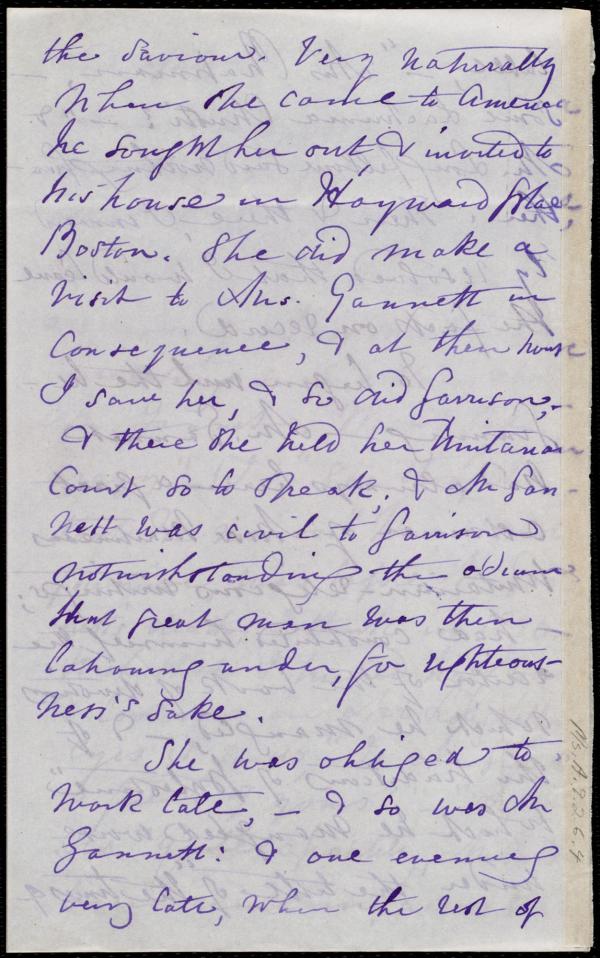 the Saviour. Very naturally
when she came to America
he sought her out & invited to
his house in Hayward Place
Boston. She did make a
visit to Mrs. Gannett in
consequence, & at their house
I saw her, & so did Garrison,
& there she held her Unitarian
Court so to speak; & Mr Gan-
nett was civil to Garrison
notwithstanding the odium
that great man was then
labouring under, for righteous-
ness's sake.
She was obliged to
work late, – & so was Mr
Gannett: & one evening
very late, when the rest of
Ms. A. 9.2 6.4